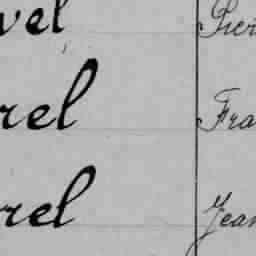 vel Pier
rel Fra
rel Jean